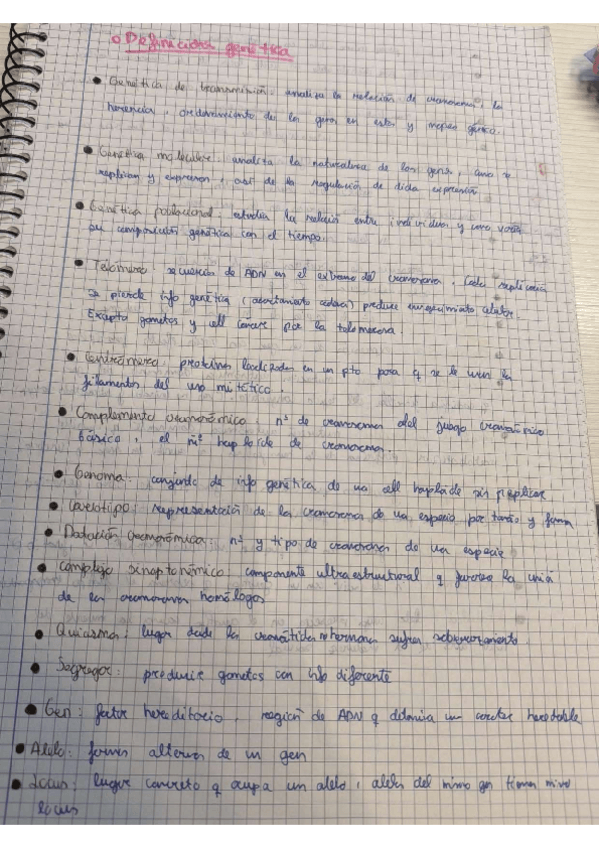 o Definiciones genética
● Genética de transmisión: analiza la relación de cromosomas, la
herencia, ordenamiento de los genes en estos y mapeo génico.
● Genética molecular: analiza la naturaleza de los genes, como se
replican y expresan, así de la regulación de dicha expresión
● Genética poblacional: estudia la relación entre individuos y como varía
su composición genética con el tiempo.
● Telómero: secuencia de ADN en el extremo del cromosoma. Cada replicación
se pierde info genética (acortamiento) produce envejecimiento celular.
Excepto gametos y cell por la telomerasa
● Centrómero: proteínas localizadas en un pto para q se le unen los
filamentos del uso mitótico.
● Complemento cromosómico: nº de cromosomas del juego cromosómico
básico, el nº haploide de cromosomas.
● Genoma: conjunto de info genética de una cell haploide sin replicar
● Cariotipo: representación de los cromosomas de una especie por tamaño y forma
● Dotación cromosómica: nº y tipo de cromosomas de una especie
● Complejo sinaptonémico: componente ultraestructural q favorece la unión
de los cromosomas homólogos
● Quiasma: lugar donde las cromátidas no hermanas sufren sobrecruzamiento
● Segregar: producir gametos con info diferente
● Gen: factor hereditario, región de ADN q determina un caracter heredable
● Alelo: formas alternas de un gen
● Locus: lugar concreto q ocupa un alelo, alelos del mismo gen tienen mismo
locus